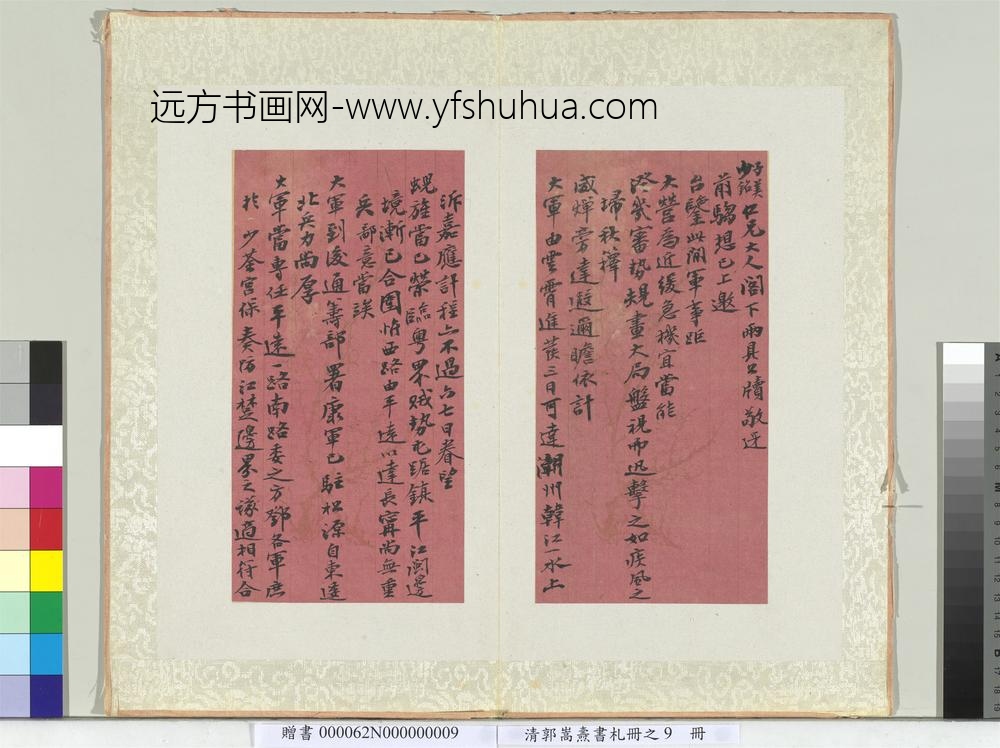 远方书画网-www.yfshuhua.com
子美
少銘仁兄大人閣下兩具公牘敬迓
前騶想已上邀
台鑒此間軍事距
大營為近緩急機宜當能
審勢規畫大局盤視而迅擊之如疾風之
掃秋籜
威燀旁達遐邇瞻依計
大軍由雲霄進茇三日可達潮州韓江一水上
泝嘉應計程亦不過六七日眷望
蜺旌當已榮臨粵界賊勢屯踞鎮平江閩邊
境漸已合圍惟西路由平遠以達長寧尚無重
兵部意當俟
大軍到後通籌部署康軍已駐松源自東達
北兵力尚厚
大軍當專任平遠一路南路委之方鄧各軍庶
於少荃宮保奏陌江楚邊界之議適相符合
贈書 000062N000000009
清郭嵩燾書札冊之 9 冊